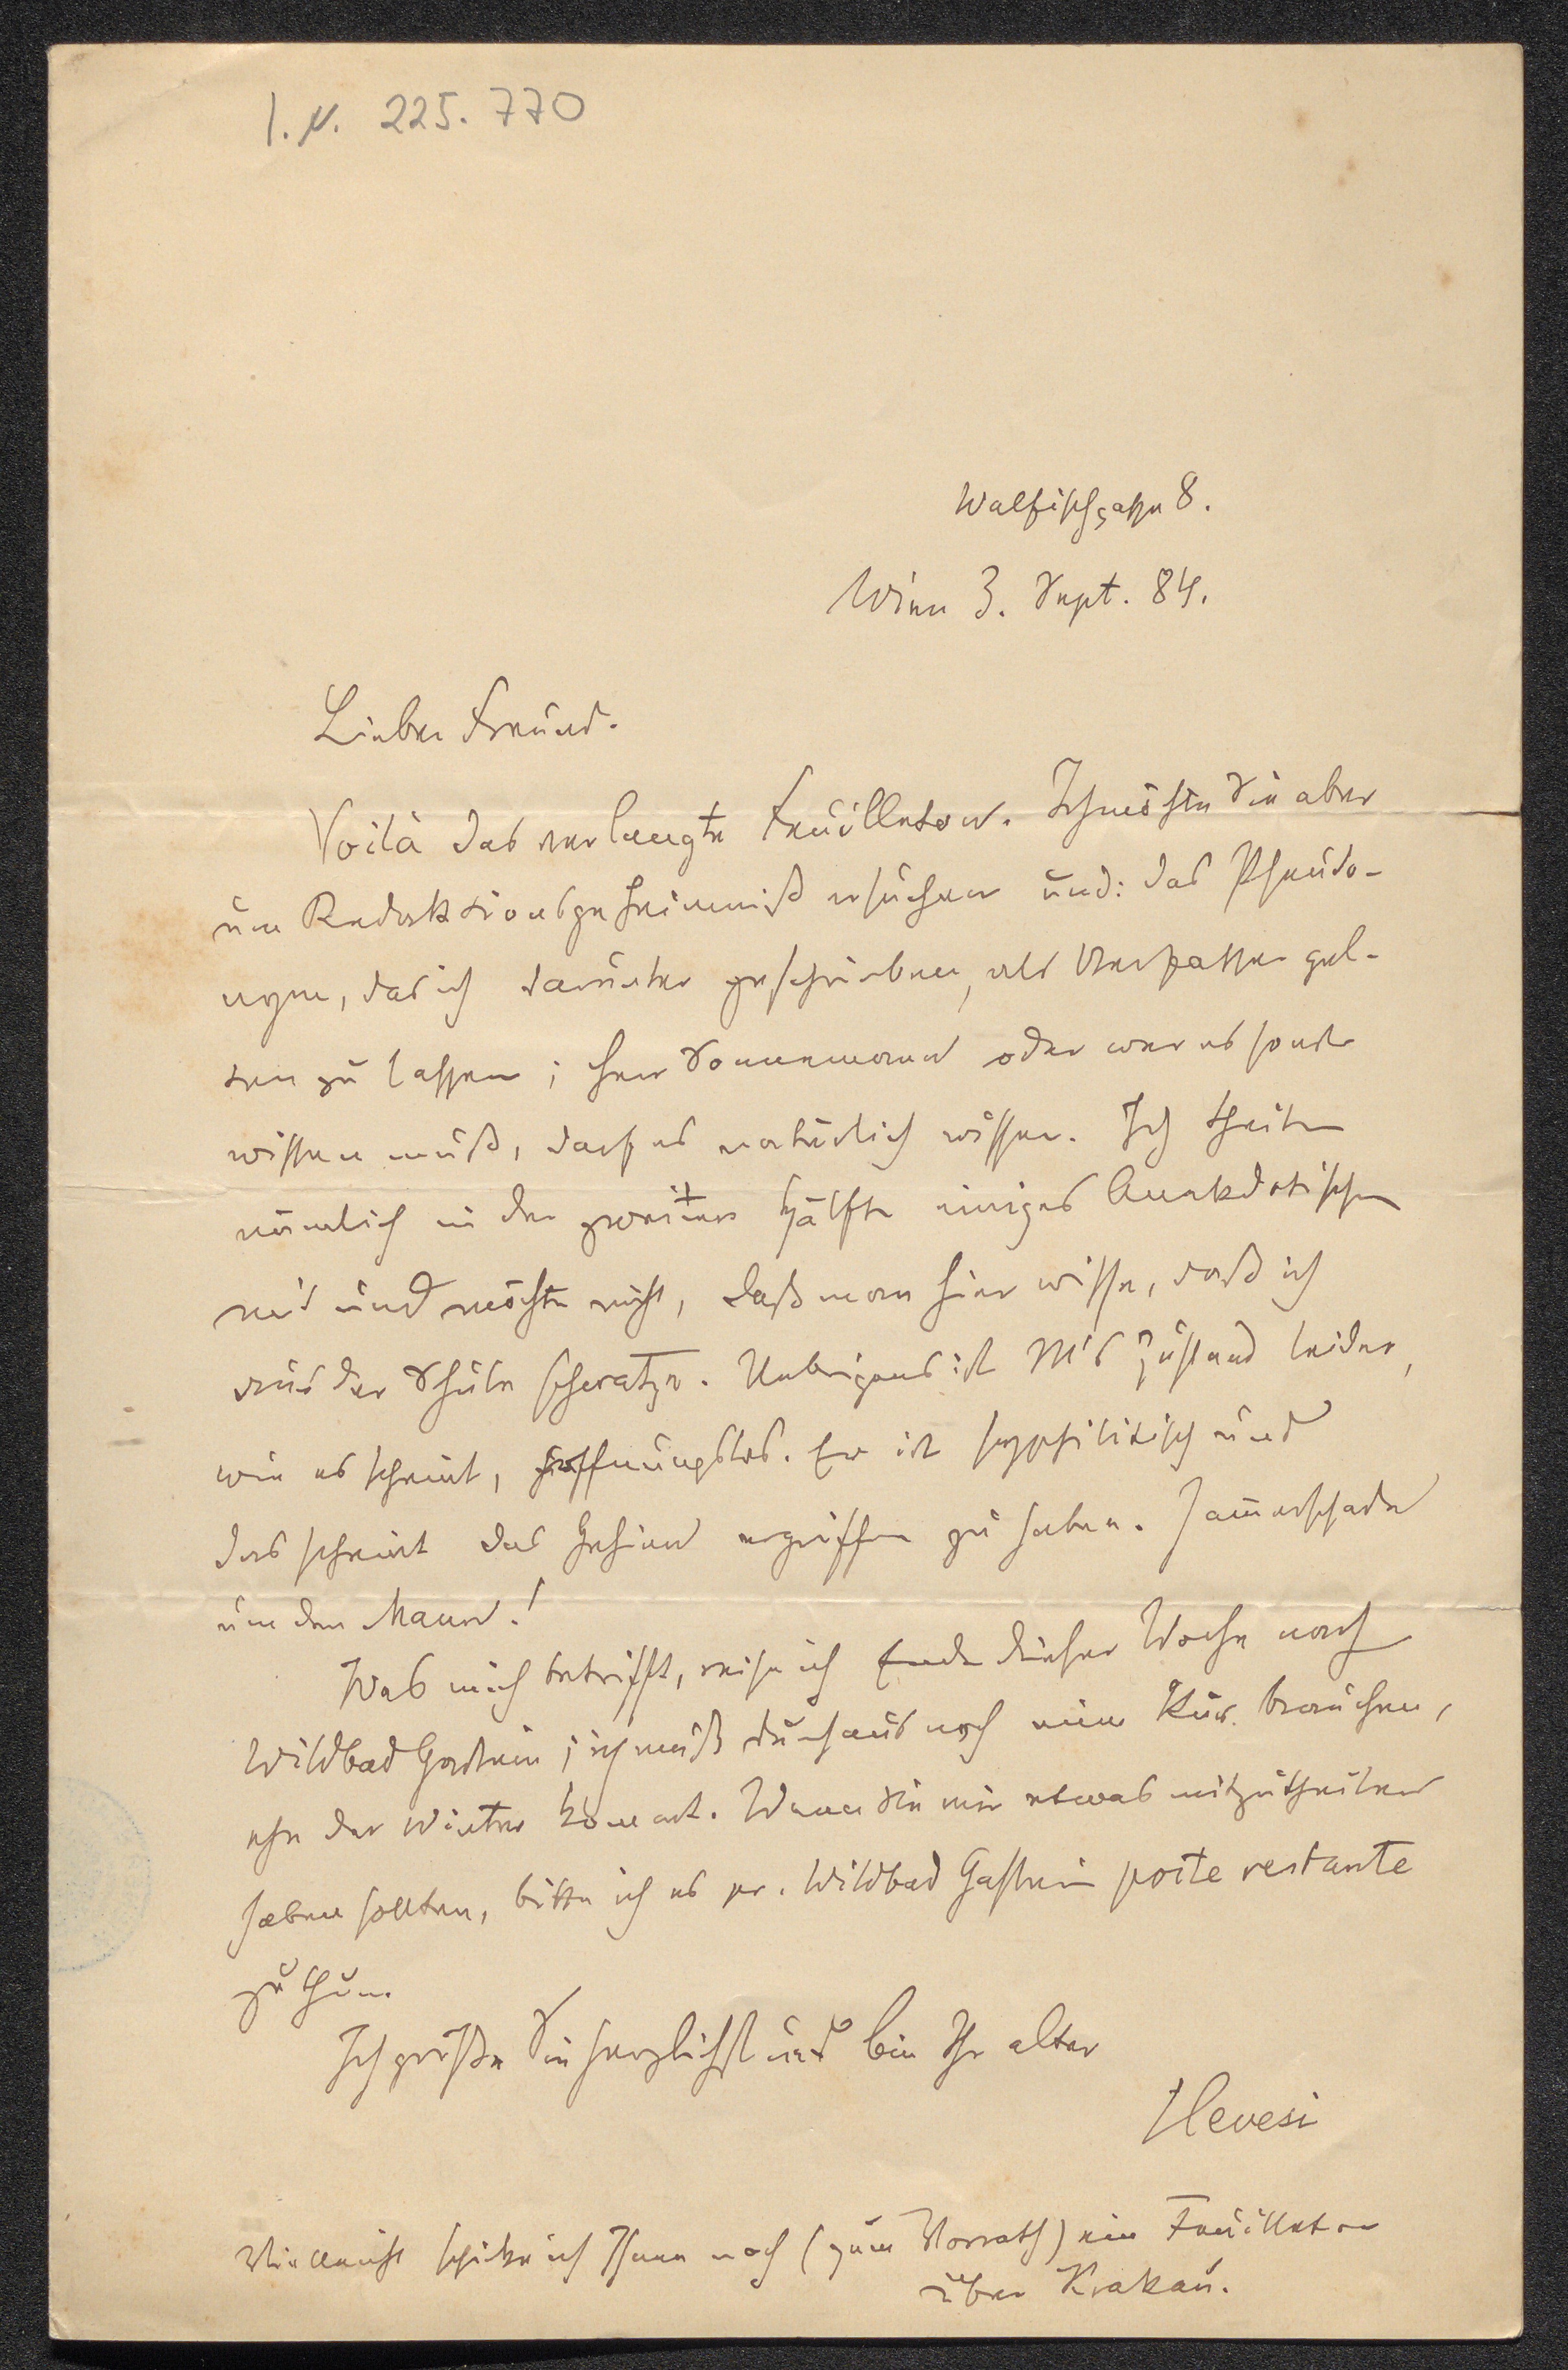 I. N. 225.770
Walfischgasse 8.
Wien 3. Sept. 84.
Lieber Freund.
Voilà das verlangte Feuilleton. Ich möchte Sie aber
um Redaktionsgeheimniß ersuchen und: das Pseudo-
nym, das ich darunter geschrieben, als Verfasser gel-
ten zu lassen; Herr Sonnemann oder wer es sonst
wissen muß, darf es natürlich wissen. Ich theile
nämlich in der zweiten Hälfte einiges Anekdotische
mit und möchte nicht, daß man hier wisse, daß ich
aus der Schule schwatze. Uebrigens ist M's Zustand leider,
wie es scheint, hoffnungslos. Er ist syphilitisch und
das scheint das Gehirn ergriffen zu haben. Jam̄erschade
um den Mann!
Was mich betrifft, reise ich Ende dieser Woche nach
Wildbad Gastein; ich muß durchaus noch eine Kur brauchen,
ehe der Winter kommt. Wenn Sie mir etwas mitzutheilen
haben sollten, bitte ich es pr. Wildbad Gastein poste restante
zu thun.
Ich grüße Sie herzlichst und bin Ihr alter
Hevesi
Vielleicht schicke ich Ihnen noch (zum Vorrath) ein Feuilleton
über Krakau.